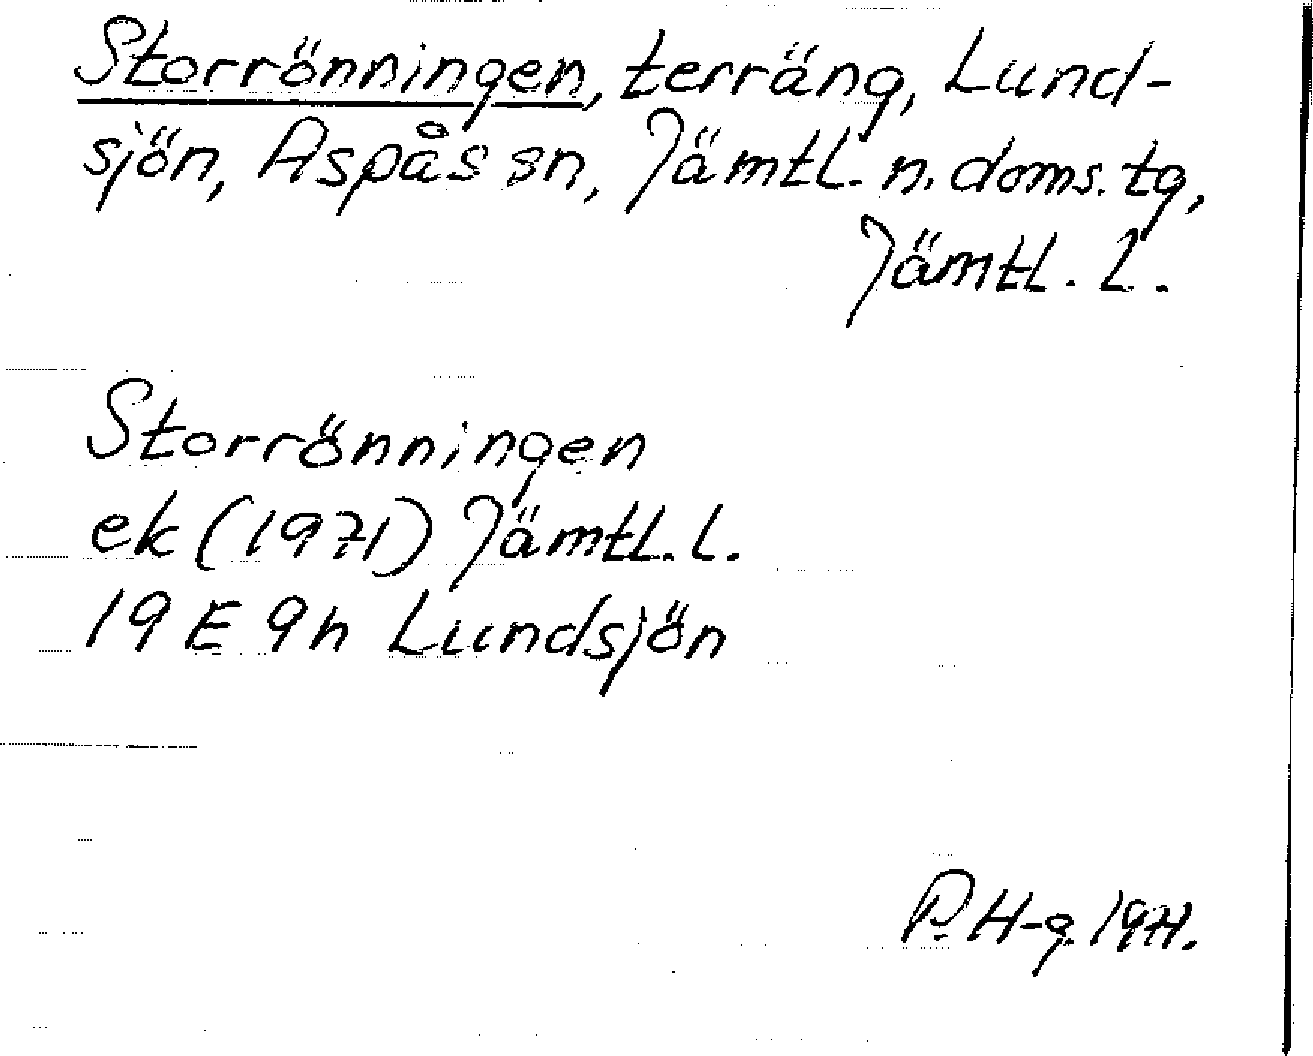 Storrönningen, terräng, Lund-
sjön, Aspås sn, Jämtl. n. doms. tg,
Jämtl. l.
Storrönningen
ek (1971) Jämtl. l.
19 E 9h Lundsjön
P. H-g. 1971.